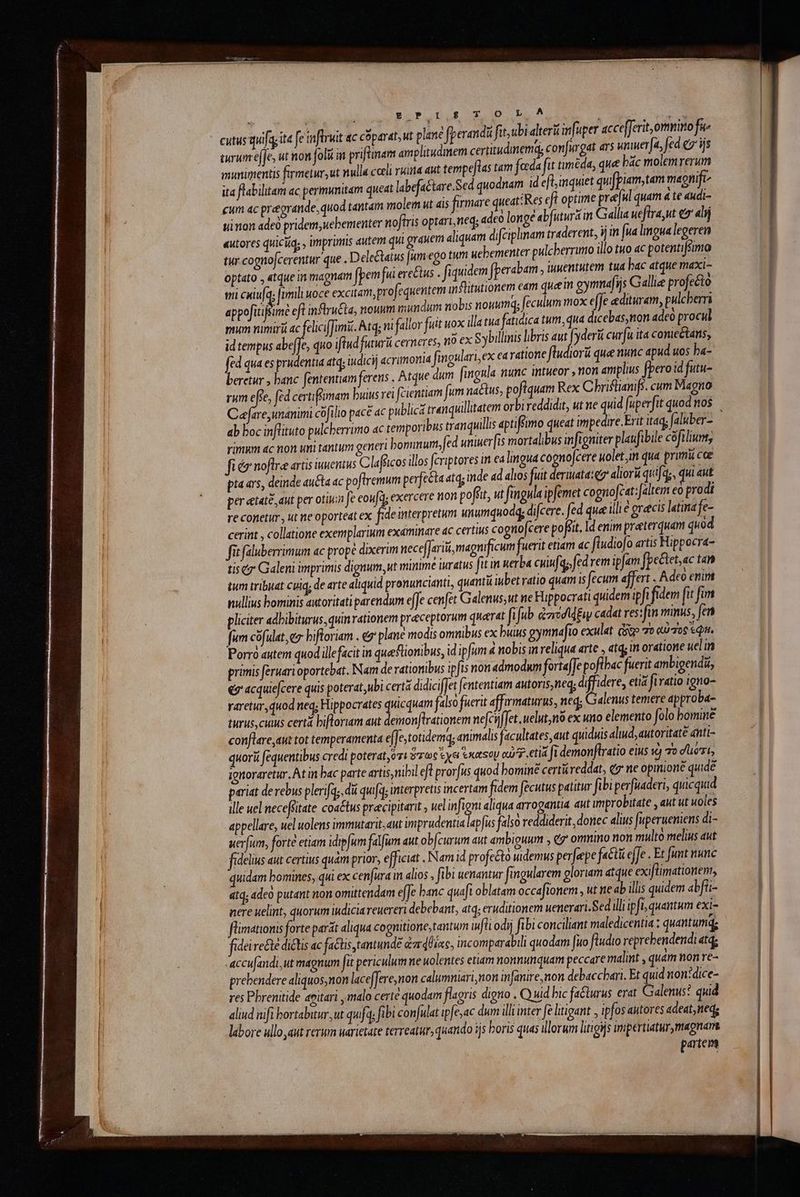 EPISTOLA
cuius quisq; ita se instruit ac cōparat, ut planè sperandū sit, ubi alterū insuper accesserit, omnino fu-
turum esse, ut non solū in pristinam amplitudinem certitudinemq; consurgat ars uniuersa, sed & ijs
munimentis firmetur, ut nulla cœli ruina aut tempestas tam fœda sit timēda, quæ hāc molem rerum
ita stabilitam ac permunitam queat labefactare. Sed quodnam id est, inquiet quispiam, tam magnifi-
cum ac prægrande, quod tantam molem ut ais firmare queat? Res est optime præsul quam à te audi-
ui non adeò pridem, uehementer nostris optari, neq; adeò longè absutura in Gallia uestra, ut & alij
autores quicūq;, imprimis autem qui grauem aliquam disciplinam traderent, ij in sua lingua legeren
tur cognoscerentur que. Delectatus sum ego tum uehementer pulcherrimo illo tuo ac potentissimo
optato, atque in magnam spem fui erectus. siquidem sperabam, iuuentutem tua hac atque maxi-
mi cuiusq; simili uoce excitam, prosequentem institutionem eam quæ in gymnasijs Galliæ profectò
appositissimè est instructa, nouum mundum nobis nouumq; seculum mox esse ædituram, pulcherri
mum nimirū ac felicissimū. Atq; ni fallor fuit uox illa tua fatidica tum, qua dicebas, non adeò procul
id tempus abesse, quo istud futurū cerneres, nō ex Sybillinis libris aut syderū cursu ita coniectans,
sed qua es prudentia atq; iudicij acrimonia singulari, ex ea ratione studiorū quæ nunc apud uos ha-
beretur, hanc sententiam ferens. Atque dum singula nunc intueor, non amplius spero id futu-
rum esse, sed certissimam huius rei scientiam sum nactus, postquam Rex Christianiss. cum Magno
Cæsare, unanimi cōsilio pacē ac publicā tranquillitatem orbi reddidit, ut ne quid supersit quod nos
ab hoc instituto pulcherrimo ac temporibus tranquillis aptissimo queat impedire. Erit itaq; saluber-
rimum ac non uni tantum generi hominum, sed uniuersis mortalibus insigniter plausibile cōsilium,
si & nostræ artis iuuentus Classicos illos scriptores in ea lingua cognoscere uolet, in qua primū cœ
pta ars, deinde aucta ac postremum perfecta atq; inde ad alios fuit deriuata: & aliorū quisq;, qui aut
per ætatē, aut per otium se eousq; exercere non possit, ut singula ipsemet cognoscat: saltem eo prodi
re conetur, ut ne oporteat ex fide interpretum unumquodq; discere. sed quæ illi è græcis latina fe-
cerint, collatione exemplarium examinare ac certius cognoscere possit. Id enim præterquam quòd
sit saluberrimum ac propè dixerim necessariū, magnificum fuerit etiam ac studioso artis Hippocra-
tis & Galeni imprimis dignum, ut minimè iuratus sit in uerba cuiusq; sed rem ipsam spectet, ac tan
tum tribuat cuiq; de arte aliquid pronuncianti, quantū iubet ratio quam is secum affert. Adeò enim
nullius hominis autoritati parendum esse censet Galenus, ut ne Hippocrati quidem ipsi fidem sit sim
pliciter adhibiturus, quin rationem præceptorum quærat si sub ἀπόδειξιν cadat res: sin minus, sen
sum cōsulat, & historiam. & planè modis omnibus ex huius gymnasio exulat
Porrò autem quod ille facit in quæstionibus, id ipsum à nobis in reliqua arte, atq; in oratione uel in
primis seruari oportebat. Nam de rationibus ipsis non admodum fortasse posthac fuerit ambigendū,
& acquiescere quis poterat, ubi certā didicisset sententiam autoris, neq; diffidere, etiā si ratio igno-
raretur, quod neq; Hippocrates quicquam falsò fuerit affirmaturus, neq; Galenus temere approba-
turus, cuius certā historiam aut demonstrationem nescijsset. uelut, nō ex uno elemento solo hominē
constare, aut tot temperamenta esse, totidemq; animalis facultates, aut quiduis aliud, autoritate anti-
quorū sequentibus credi poterat, etiā si demonstratio eius
ignoraretur. At in hac parte artis, nihil est prorsus quod hominē certū reddat, & ne opinionē quidē
pariat de rebus plerisq;, dū quisq; interpretis incertam fidem secutus patitur sibi persuaderi, quicquid
ille uel necessitate coactus præcipitarit, uel insigni aliqua arrogantia aut improbitate, aut ut uoles
appellare, uel uolens immutarit, aut imprudentia lapsus falsò reddiderit, donec alius superueniens di-
uersum, fortè etiam idipsum falsum aut obscurum aut ambiguum, & omnino non multò melius aut
fidelius aut certius quàm prior, efficiat. Nam id profectò uidemus persæpe factū esse. Et sunt nunc
quidam homines, qui ex censura in alios, sibi uenantur singularem gloriam atque existimationem,
atq; adeò putant non omittendam esse hanc quasi oblatam occasionem, ut ne ab illis quidem absti-
nere uelint, quorum iudicia reuereri debebant, atq; eruditionem uenerari. Sed illi ipsi, quantum exi-
stimationis forte parāt aliqua cognitione, tantum iusti odij sibi conciliant maledicentia: quantumq;
fidei rectè dictis ac factis, tantundē incomparabili quodam suo studio reprehendendi atq;
accusandi, ut magnum sit periculum ne uolentes etiam nonnunquam peccare malint, quàm non re-
prehendere aliquos, non lacessere, non calumniari, non insanire, non debacchari. Et quid non? dice-
res Phrenitide agitari, malo certè quodam flagris digno. Quid hic facturus erat Galenus? quid
aliud nisi hortabitur, ut quisq; sibi consulat ipse, ac dum illi inter se litigant, ipsos autores adeat, neq;
labore ullo, aut rerum uarietate terreatur, quando ijs horis quas illorum litigijs impertiatur, magnam
partem